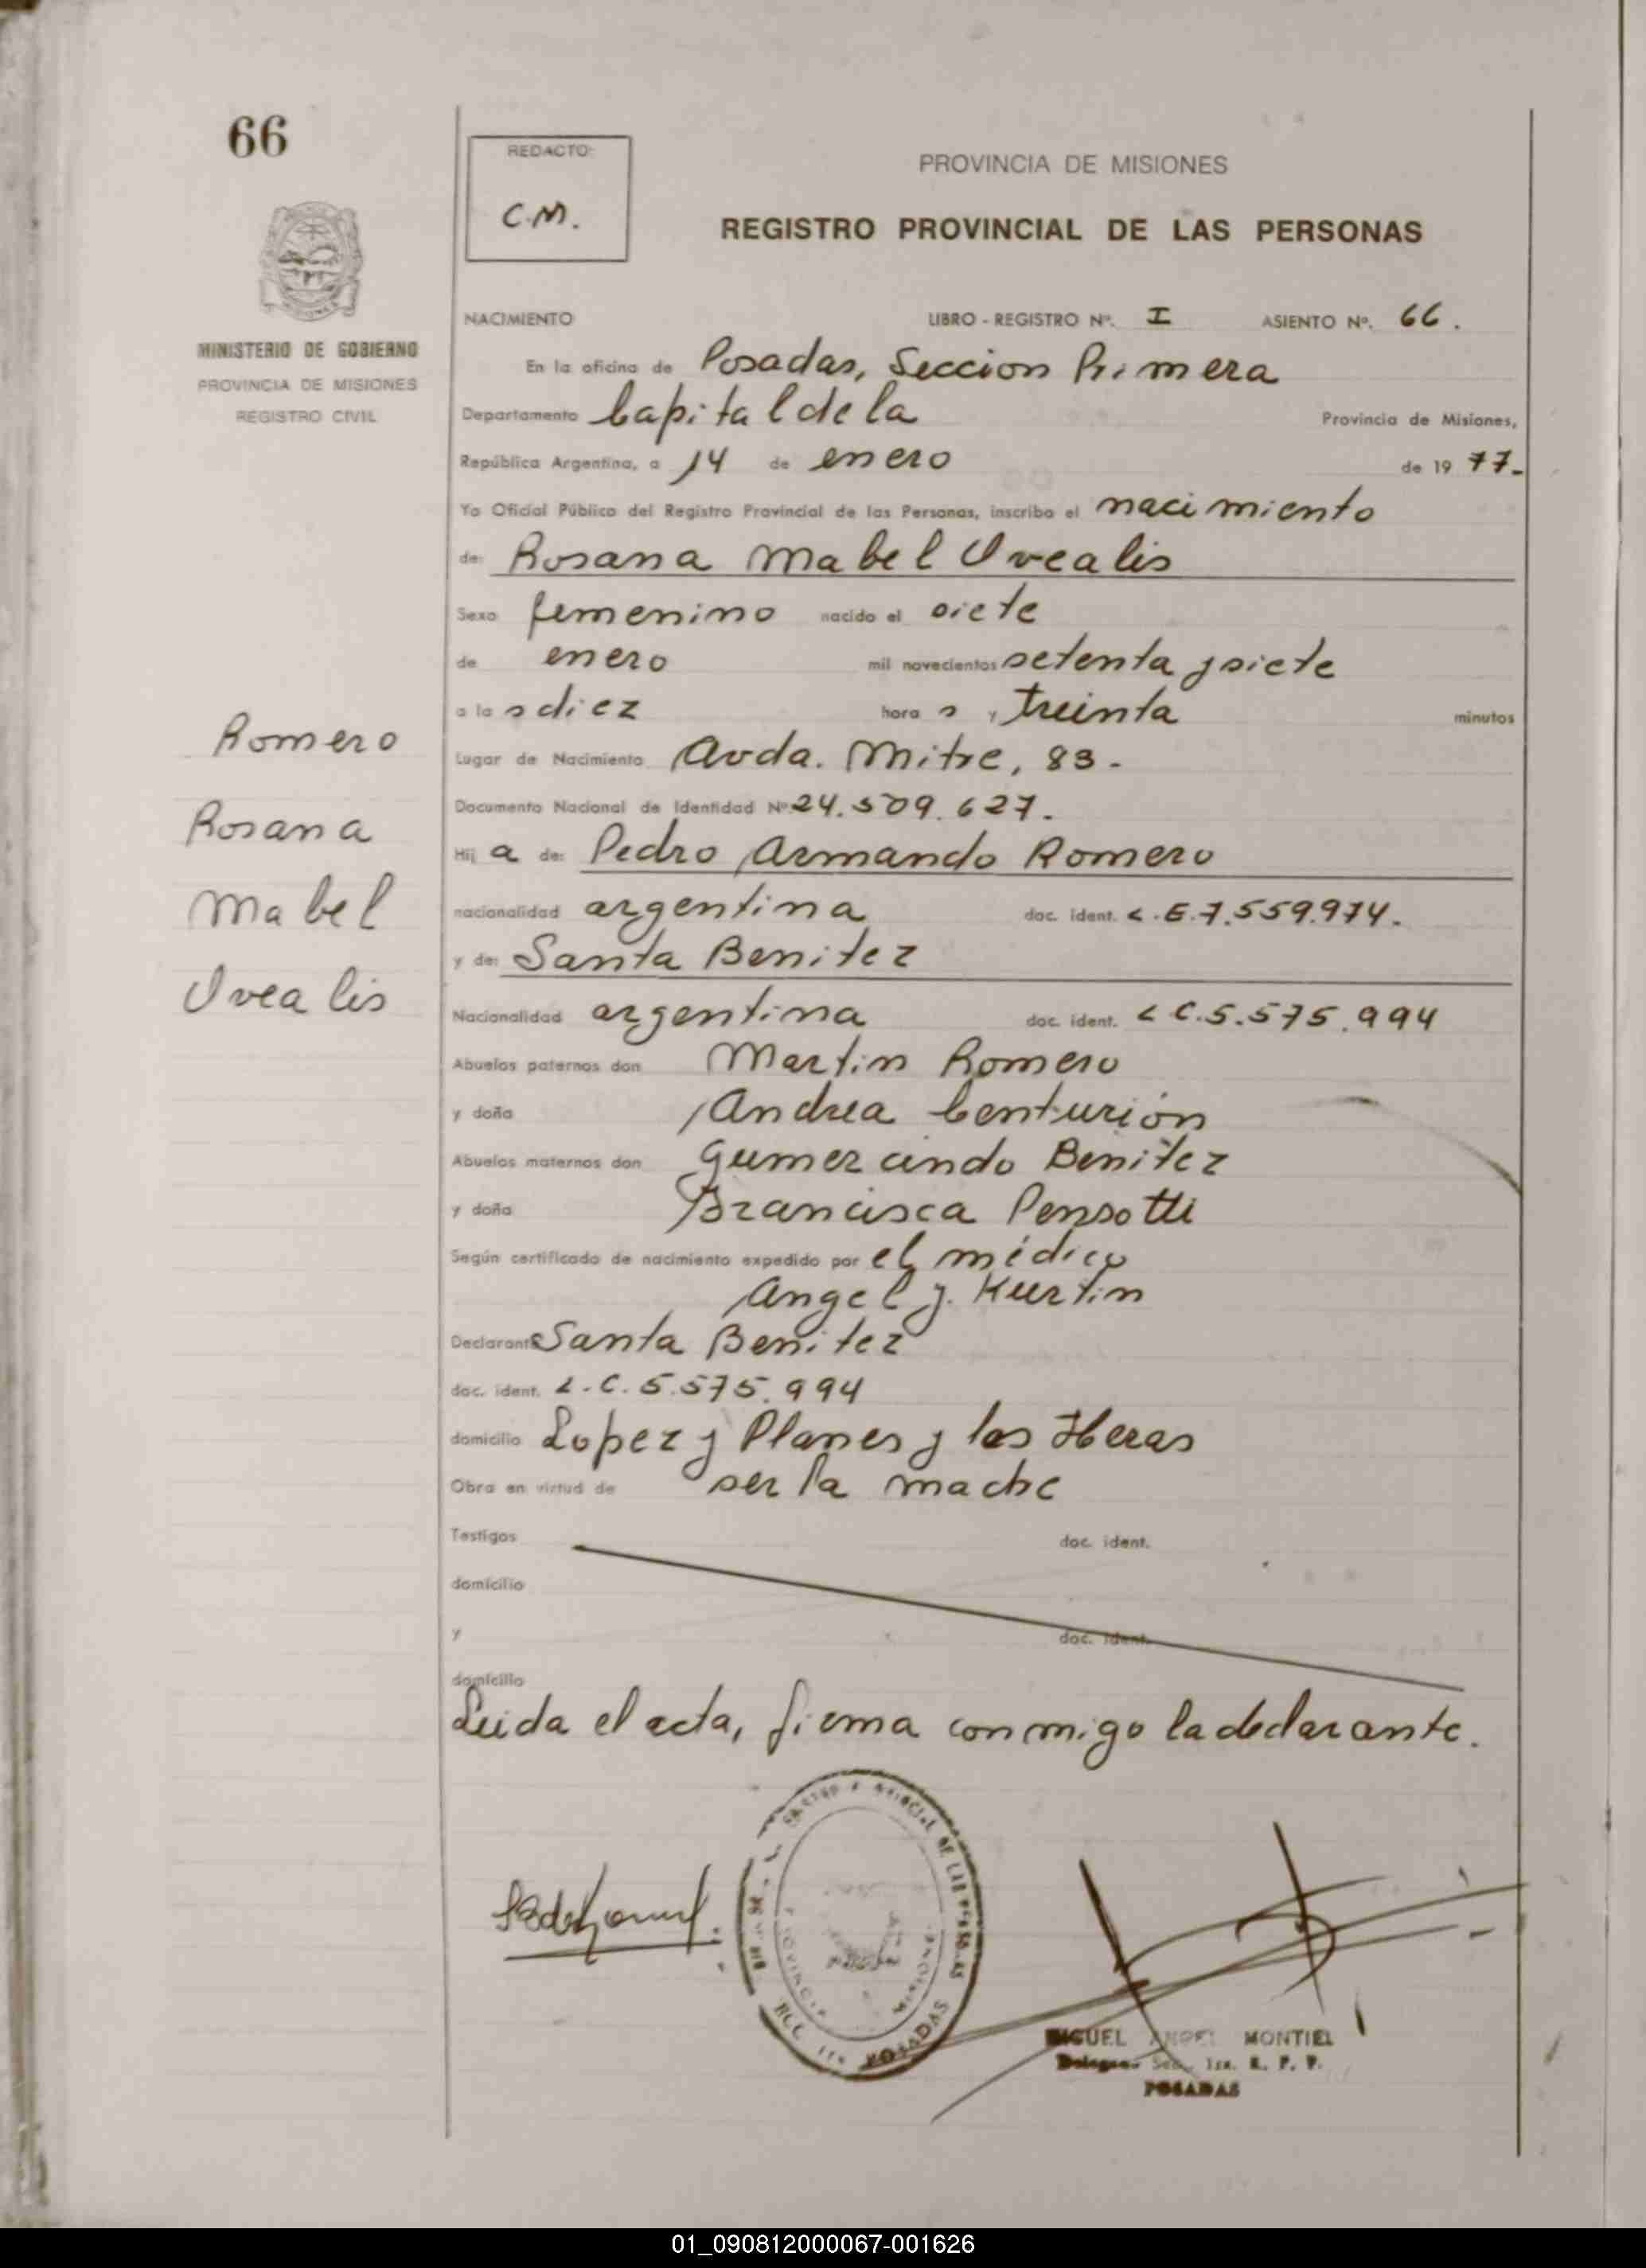 66
REDACTO:
C.M.
PROVINCIA DE MISIONES
REGISTRO PROVINCIAL DE LAS PERSONAS
MINISTERIO DE GOBIERNO
PROVINCIA DE MISIONES
REGISTRO CIVIL
NACIMIENTO LIBRO - REGISTRO Nº. I ASIENTO Nº. 66.
En la oficina de Posadas, Seccion Primera
Departamento Capital de la Provincia de Misiones,
República Argentina, a 14 de enero de 1977-
Yo Oficial Público del Registro Provincial de las Personas, inscribo el nacimiento
de: Rosana Mabel Uvealis
Sexo femenino nacido el siete
de enero mil novecientos setenta y siete
a las diez horas y treinta minutos
Lugar de Nacimiento Avda. Mitre, 83-
Documento Nacional de Identidad Nº 24.509.627.
Hija de: Pedro Armando Romero
nacionalidad argentina doc. ident. L.E.7.559.974.
y de: Santa Benitez
Nacionalidad argentina doc. ident. L C.5.575.994
Abuelos paternos don Martin Romero
y doña Andrea Centurión
Abuelos maternos don Gumercindo Benitez
y doña Francisca Pensotti
Según certificado de nacimiento expedido por el médico
Angel J. Kurtin
Declarante Santa Benitez
doc. ident. L.C. 5.575.994
domicilio Lopez y Planes y las Heras
Obra en virtud de ser la madre
Testigos doc. ident.
domicilio
y doc. ident.
domicilio
Leida el acta, firma conmigo la declarante.
Romero
Rosana
Mabel
Uvealis
PROVINCIAL DE LAS PERSONAS
PROVINCIA MISIONES
POSADAS
MIGUEL ANGEL MONTIEL
Sec. 1ra. R. P. P.
POSADAS
01_090812000067-001626